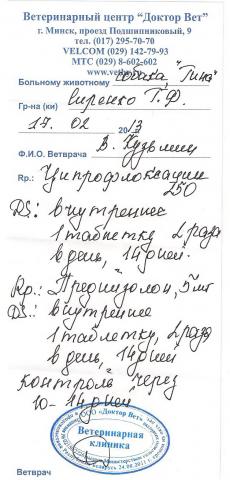 Ветеринарный центр "Доктор Вет"
г. Минск, проезд Подшипниковый, 9
тел. (017) 295-70-70
VELCOM (029) 142-79-93
МТС (029) 8-602-602
www.vet
Больному животному собака, "Гина"
Гр-на (ки) Т.Ф.
17. 02 2013
Ф.И.О. Ветврача В. Кузьмин
Rp.: Ципрофлоксацин
250
DS: внутреннее
1 таблетку 2 раза
в день, 14 дней.
Rp.: Преднизолон, 5 мг
DS.: внутреннее
1 таблетку, 2 раза
в день, 14 дней
контроль через
10-14 дней
ООО «Доктор Вет»
Ветеринарная
клиника
24.08.2011
Ветврач